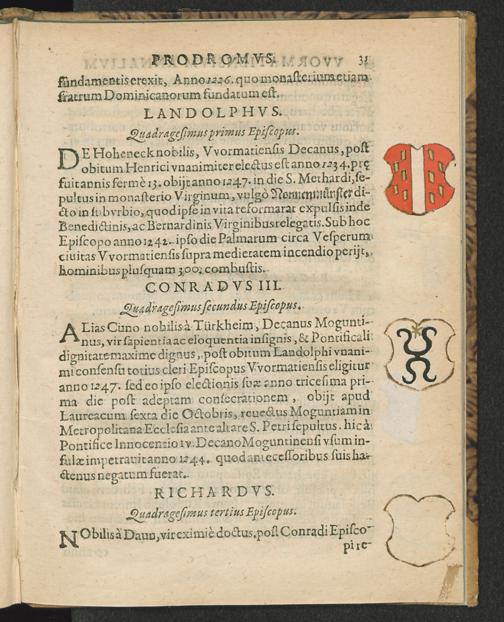 PRODROMVS. 31
fundamentis erexit, Anno 1226. quo monasterium etiam
fratrum Dominicanorum fundatum est.
LANDOLPHVS.
Quadragesimus primus Episcopus.
DE Hoheneck nobilis, Vvormatiensis Decanus, post
obitum Henrici vnanimiter electus est anno 1234. prę
fuit annis fermè 13. obijt anno 1247. in die S. Methardi, se-
pultus in monasterio Virginum, vulgò Nonnenmünster di-
cto in suburbio, quod ipse in vita reformarat expulsis inde
Benedictinis, ac Bernardinis Virginibus relegatis. Sub hoc
Episcopo anno 1242. ipso die Palmarum circa Vesperum
ciuitas Vvormatiensis supra medietatem incendio perijt,
hominibus plusquam 300. combustis.
CONRADVS III.
Quadragesimus secundus Episcopus.
ALias Cuno nobilis à Türkheim, Decanus Mogunti-
nus, vir sapientia ac eloquentia insignis, & Pontificali
dignitate maxime dignus, post obitum Landolphi vnani-
mi consensu totius cleri Episcopus Vvormatiensis eligitur
anno 1247. sed eo ipso electionis suæ anno tricesima pri-
ma die post adeptam consecrationem, obijt apud
Laureacum sexta die Octobris, reuectus Moguntiam in
Metropolitana Ecclesia ante altare S. Petri sepultus. hic à
Pontifice Innocentio IV. Decano Moguntinensi vsum in-
fulæ impetrauit anno 1244. quod antecessoribus suis ha-
ctenus negatum fuerat.
RICHARDVS.
Quadragesimus tertius Episcopus.
NObilis à Daun, vir eximiè doctus, post Conradi Episco-
pi re-